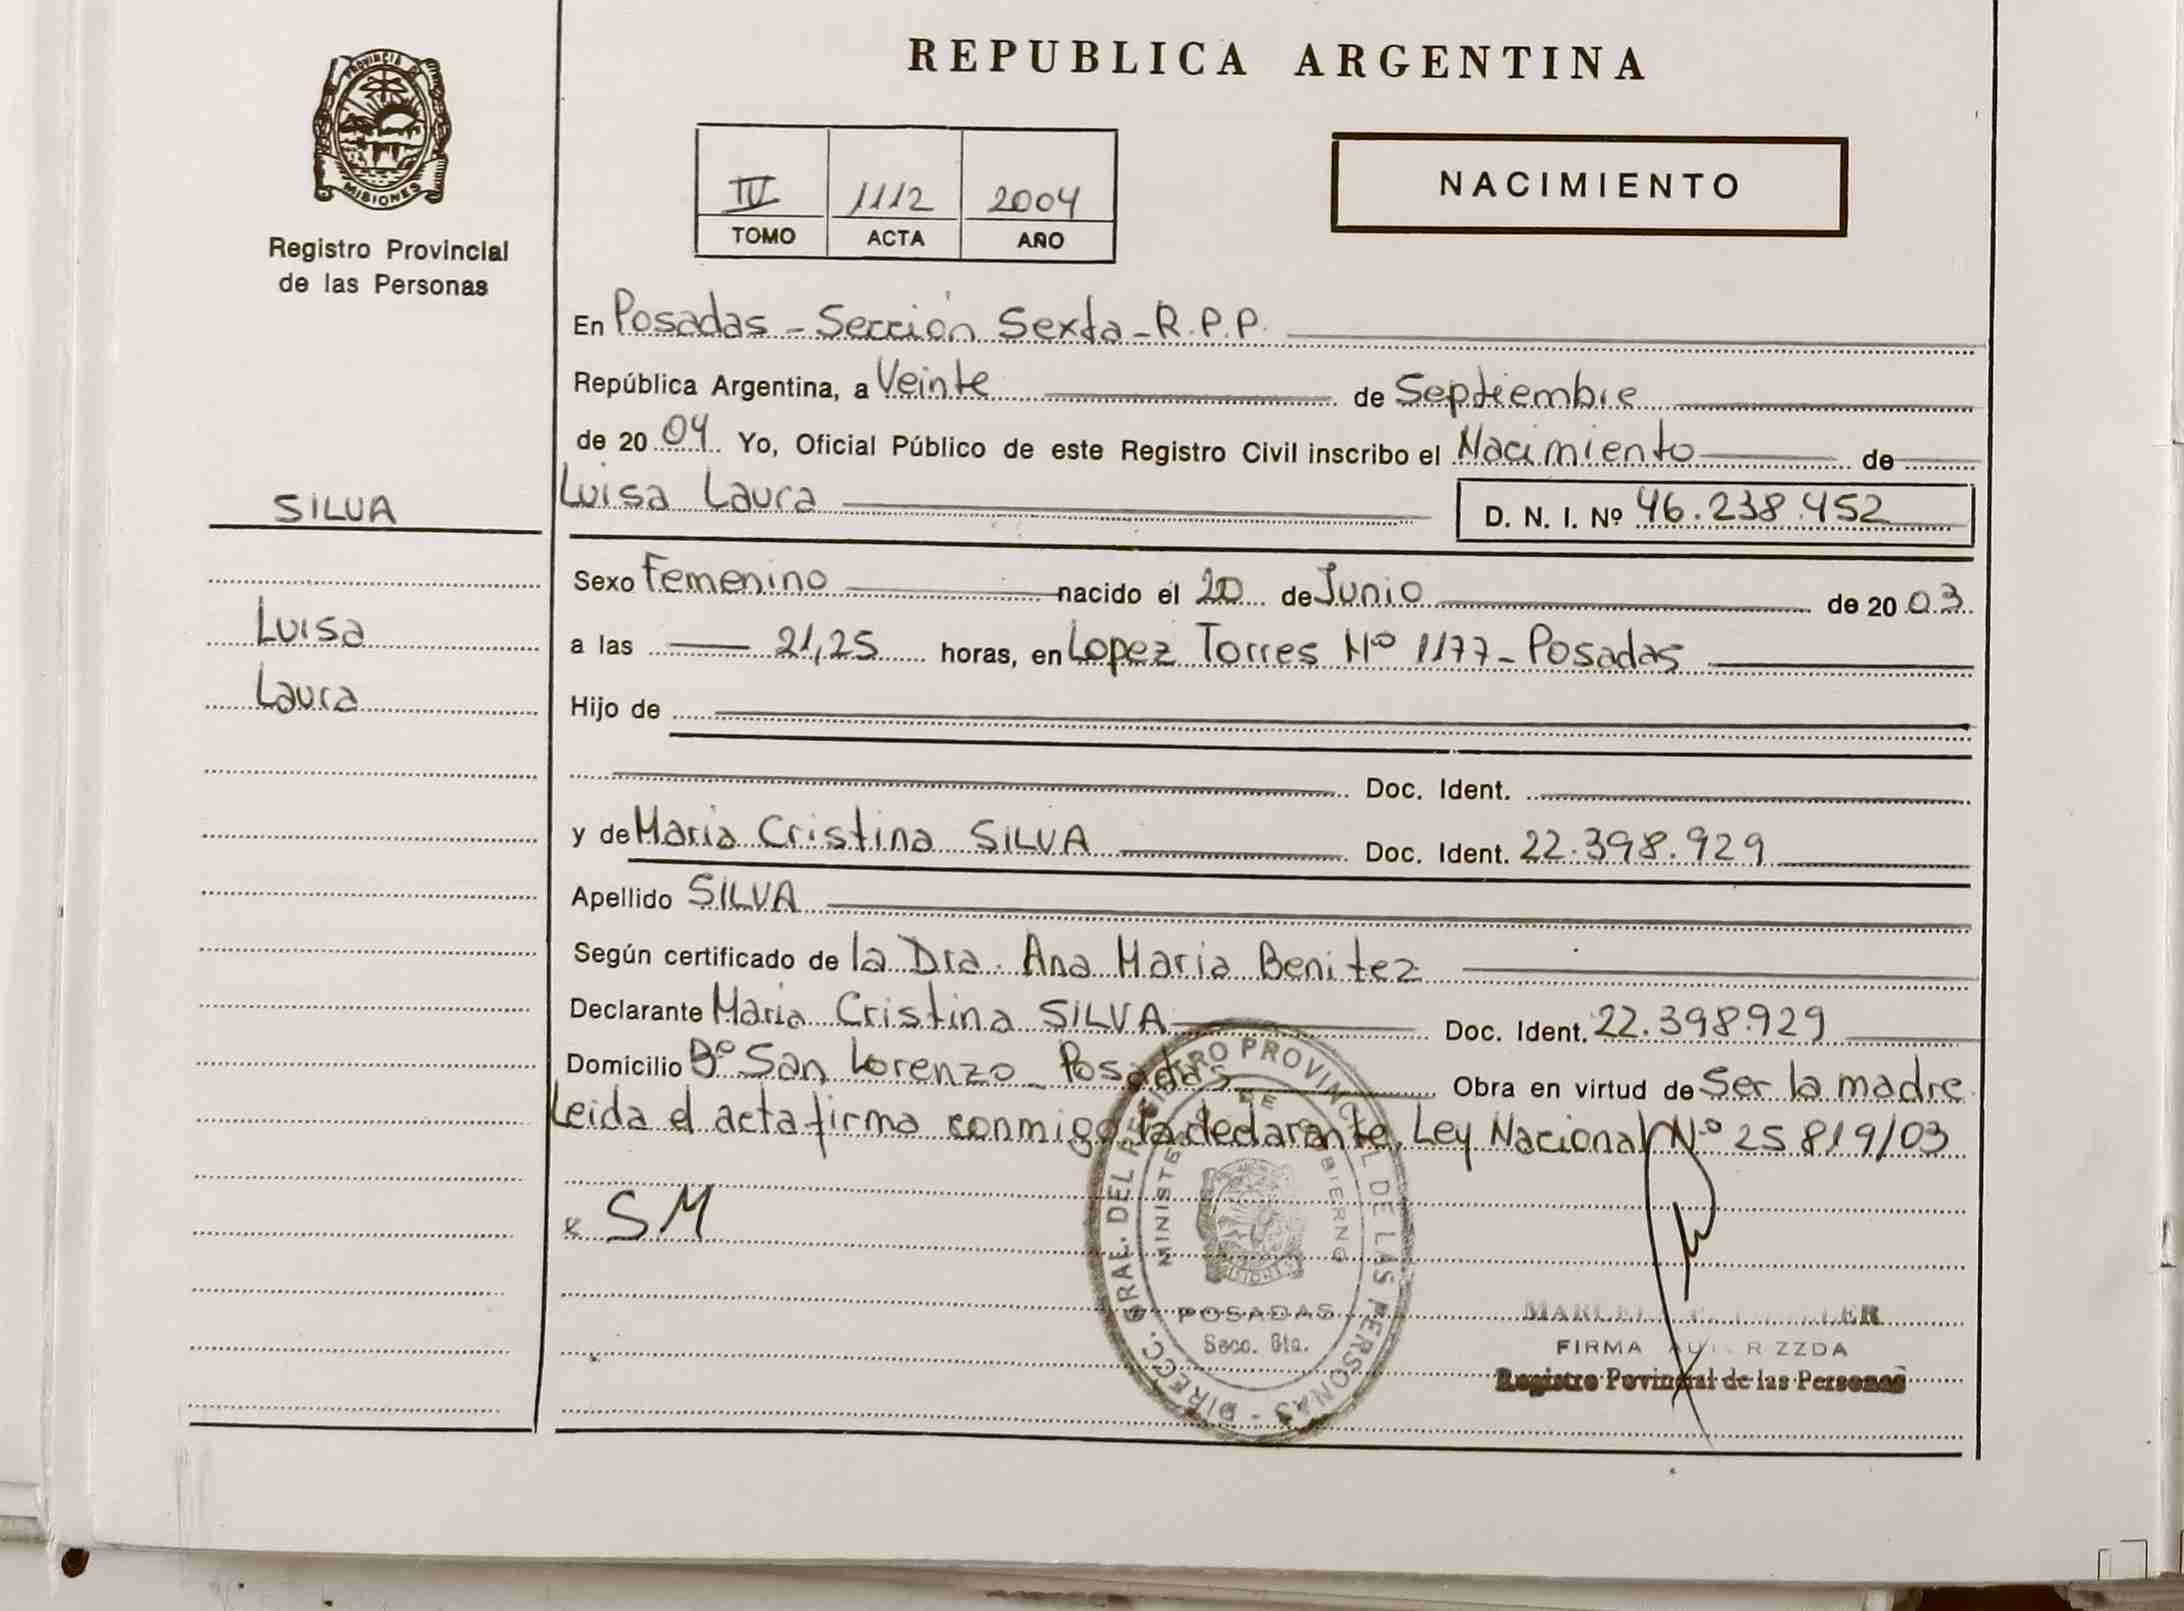 REPUBLICA ARGENTINA
PROVINCIA DE
MISIONES
Registro Provincial
de las Personas
IV 1112 2004
TOMO ACTA AÑO
NACIMIENTO
En Posadas - Sección Sexta - R.P.P.
República Argentina, a Veinte de Septiembre
de 2004 Yo, Oficial Público de este Registro Civil inscribo el Nacimiento de
SILVA
Luisa Laura D. N. I. Nº 46.238.452
Sexo Femenino nacido el 20 de Junio de 2003
Luisa
a las 21,25 horas, en Lopez Torres Nº 1177 - Posadas
Laura
Hijo de
Doc. Ident.
y de Maria Cristina SILVA Doc. Ident. 22.398.929
Apellido SILVA
Según certificado de la Dra. Ana Maria Benitez
Declarante Maria Cristina SILVA Doc. Ident. 22.398.929
Domicilio Bº San Lorenzo - Posadas Obra en virtud de Ser la madre
Leida el acta firma conmigo la declarante. Ley Nacional Nº 25819/03
x SM
DIRECC. GRAL. DEL REGISTRO PROVINCIAL DE LAS PERSONAS
MINISTERIO DE GOBIERNO
MISIONES
POSADAS
Secc. 6ta.
FIRMA
Registro Povincial de las Personas